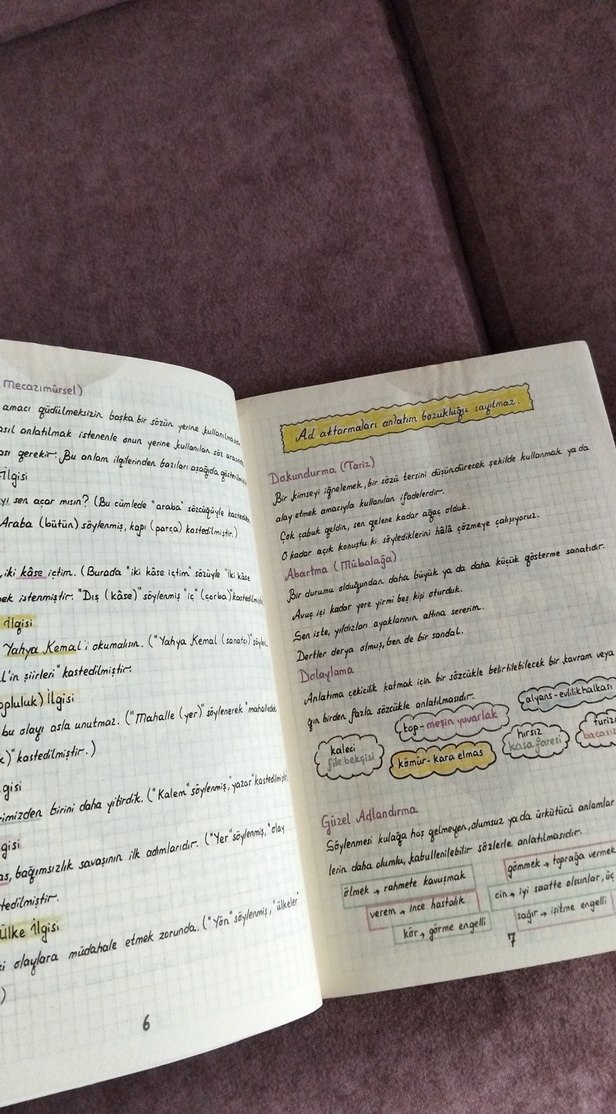 Mecazımürsel)
amacı güdülmeksizin başka bir sözün yerine kullanılmasıdır
asıl anlatılmak istenenle onun yerine kullanılan söz arasında
ası gerekir. Bu anlam ilgilerinden bazıları aşağıda
İlgisi
yı sen açar mısın? (Bu cümlede "araba" sözcüğüyle
Araba (bütün) söylenmiş, kapı (parça) kastedilmiştir.)
, iki kâse içtim. (Burada "iki kâse içtim" sözüyle "iki kâse
ek istenmiştir. "Dış (kâse)" söylenmiş "iç" (çorba)" kastedilmiştir
İlgisi
Yahya Kemal'i okumalısın. ("Yahya Kemal (sanatçı)"
l'in şiirleri" kastedilmiştir.
opluluk) İlgisi
bu olayı asla unutmaz. ("Mahalle (yer)" söylenerek "mahalledeki
k)" kastedilmiştir.)
gisi
rimizden birini daha yitirdik. ("Kalem" söylenmiş, "yazar" kastedilmiştir
gisi
as, bağımsızlık savaşının ilk adımlarıdır. ("Yer" söylenmiş, "olay
tedilmiştir.
ülke İlgisi
ki olaylara müdahale etmek zorunda. ("Yön" söylenmiş, "ülkeler"
)
6
Ad aktarmaları anlatım bozukluğu sayılmaz.
Dokundurma (Tariz)
Bir kimseyi iğnelemek, bir sözü tersini düşündürecek şekilde kullanmak ya da
alay etmek amacıyla kullanılan ifadelerdir.
Çok çabuk geldin, sen gelene kadar ağaç olduk.
O kadar açık konuştu ki söylediklerini hâlâ çözmeye çalışıyoruz.
Abartma (Mübalağa)
Bir durumu olduğundan daha büyük ya da daha küçük gösterme sanatıdır.
Avuç içi kadar yere yirmi beş kişi oturduk.
Sen iste, yıldızları ayaklarının altına sererim.
Dertler derya olmuş, ben de bir sandal.
Dolaylama
Anlatıma çekicilik katmak için bir sözcükle belirtilebilecek bir kavram veya
ğın birden fazla sözcükle anlatılmasıdır.
alyans-evlilik halkası
top-meşin yuvarlak
kaleci
file bekçisi
kömür-kara elmas
hırsız
kasa faresi
turiz
bacasız
Güzel Adlandırma
Söylenmesi kulağa hoş gelmeyen, olumsuz ya da ürkütücü anlamlar
lerin daha olumlu, kabullenilebilir sözlerle anlatılmasıdır.
ölmek → rahmete kavuşmak
gömmek → toprağa vermek
verem → ince hastalık
cin → iyi saatte olsunlar, üç
kör → görme engelli
sağır → işitme engelli
7